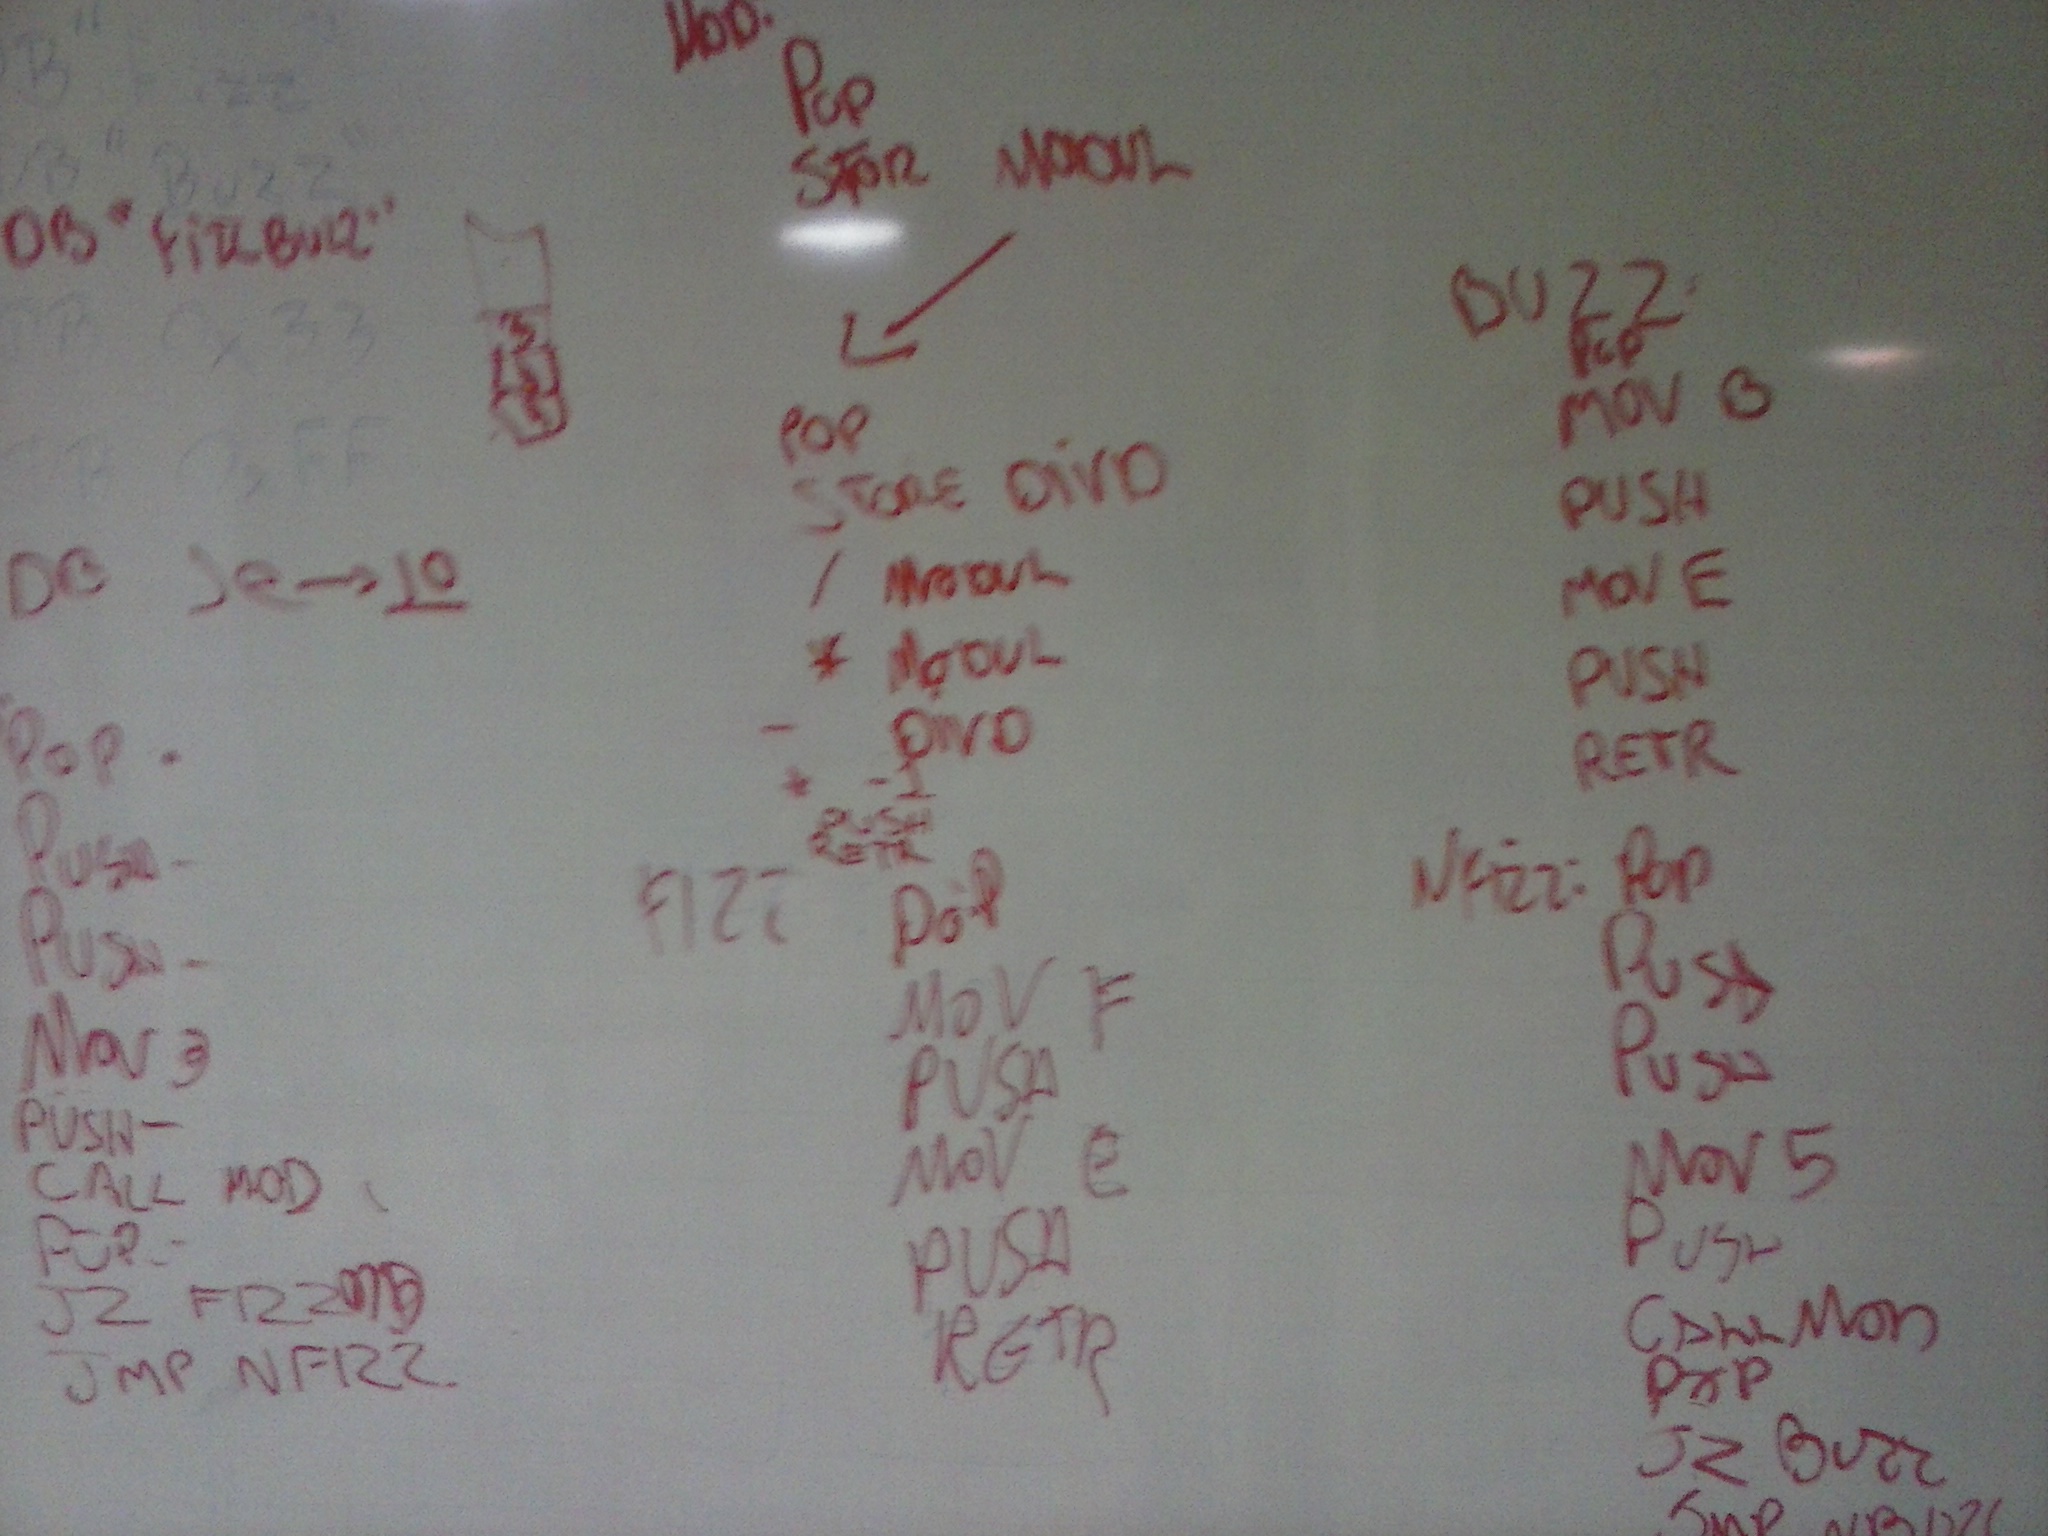 DB "Fizz
DB "Buzz"
DB "FizzBuzz"
DB 0x33
DB 0xFF
DB → 10
POP
PUSH
PUSH
MOV 3
PUSH
CALL MOD
POP
JZ FIZZ
JMP NFIZZ
3
MOD:
POP
STOR MODUL
POP
STORE DIVD
/ MODUL
* MODUL
- DIVD
* -1
PUSH
RETR
FIZZ POP
MOV F
PUSH
MOV E
PUSH
RETR
BUZZ:
POP
MOV B
PUSH
MOV E
PUSH
RETR
NFIZZ: POP
PUSH
PUSH
MOV 5
PUSH
CALL MOD
POP
JZ BUZZ
JMP NBUZZ